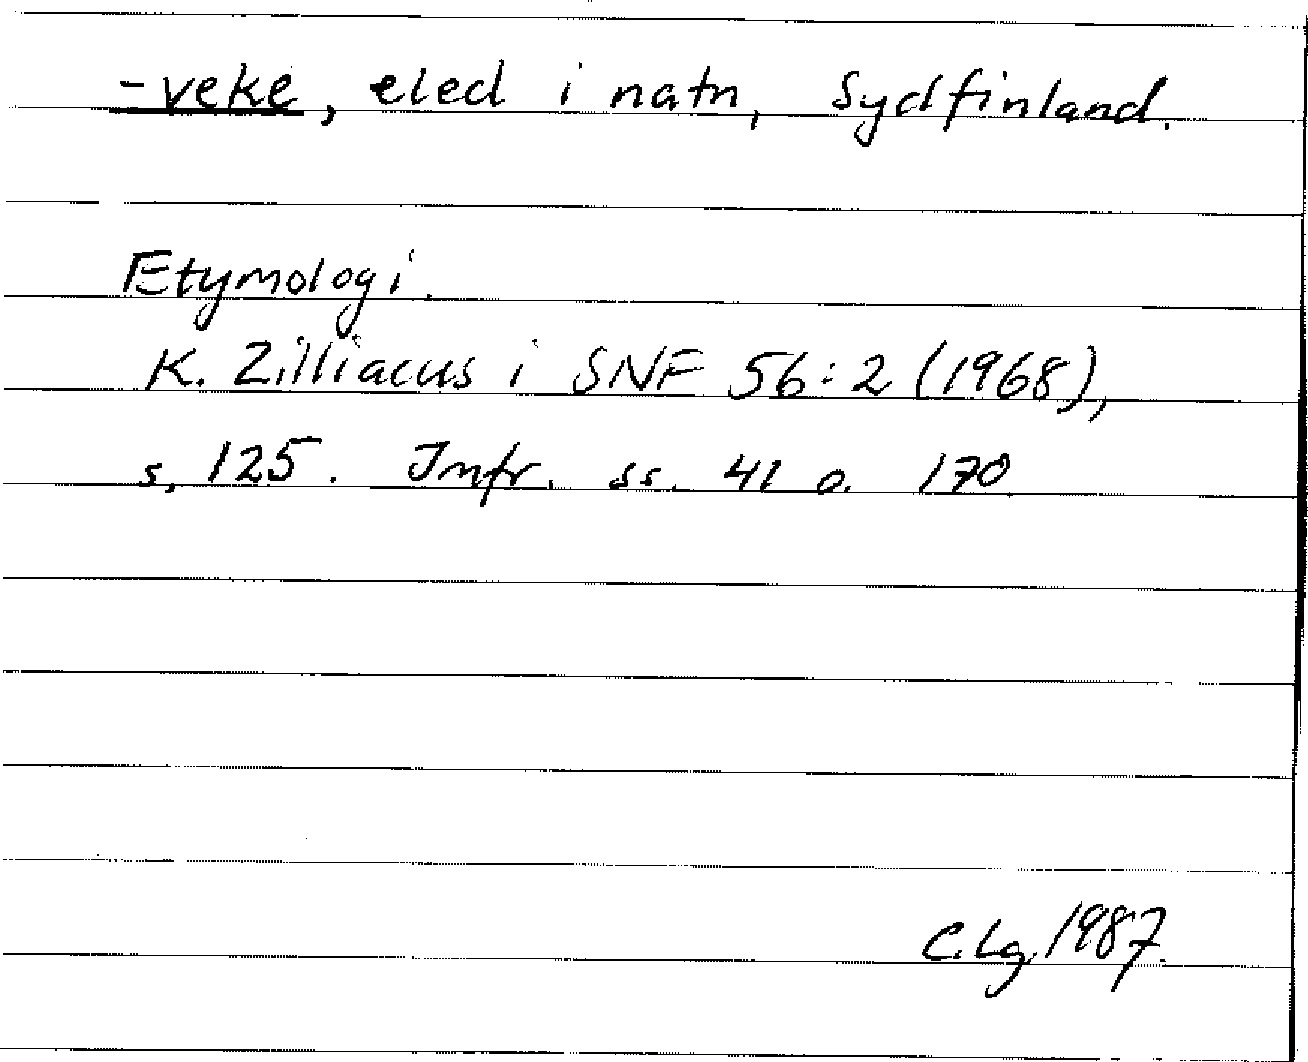 -veke, eled i natn, Sydfinland.
Etymologi.
K. Zilliacus i SNF 56:2 (1968),
s, 125. Jmfr. ss. 41 o. 170
C.Lg.1987.